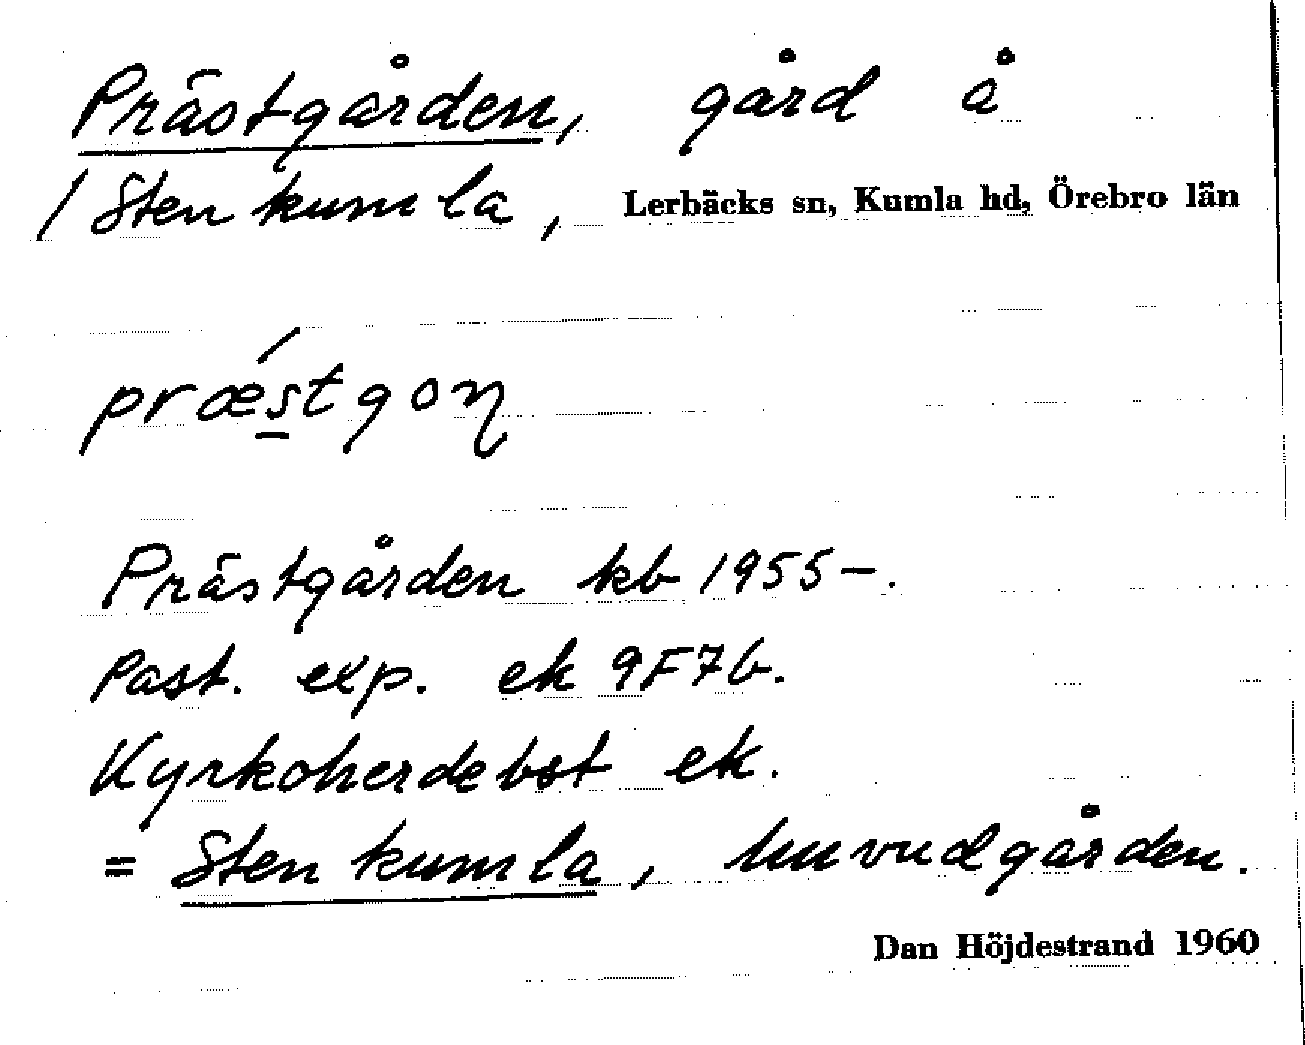 Prästgården, gård å
/ Stenkumla, Lerbäcks sn, Kumla hd, Örebro län
præ´s̲tgoɳ
Prästgården kb 1955–.
Past. exp. ek 9F7b.
Kyrkoherdebst ek.
= Stenkumla, huvudgården.
Dan Höjdestrand 1960